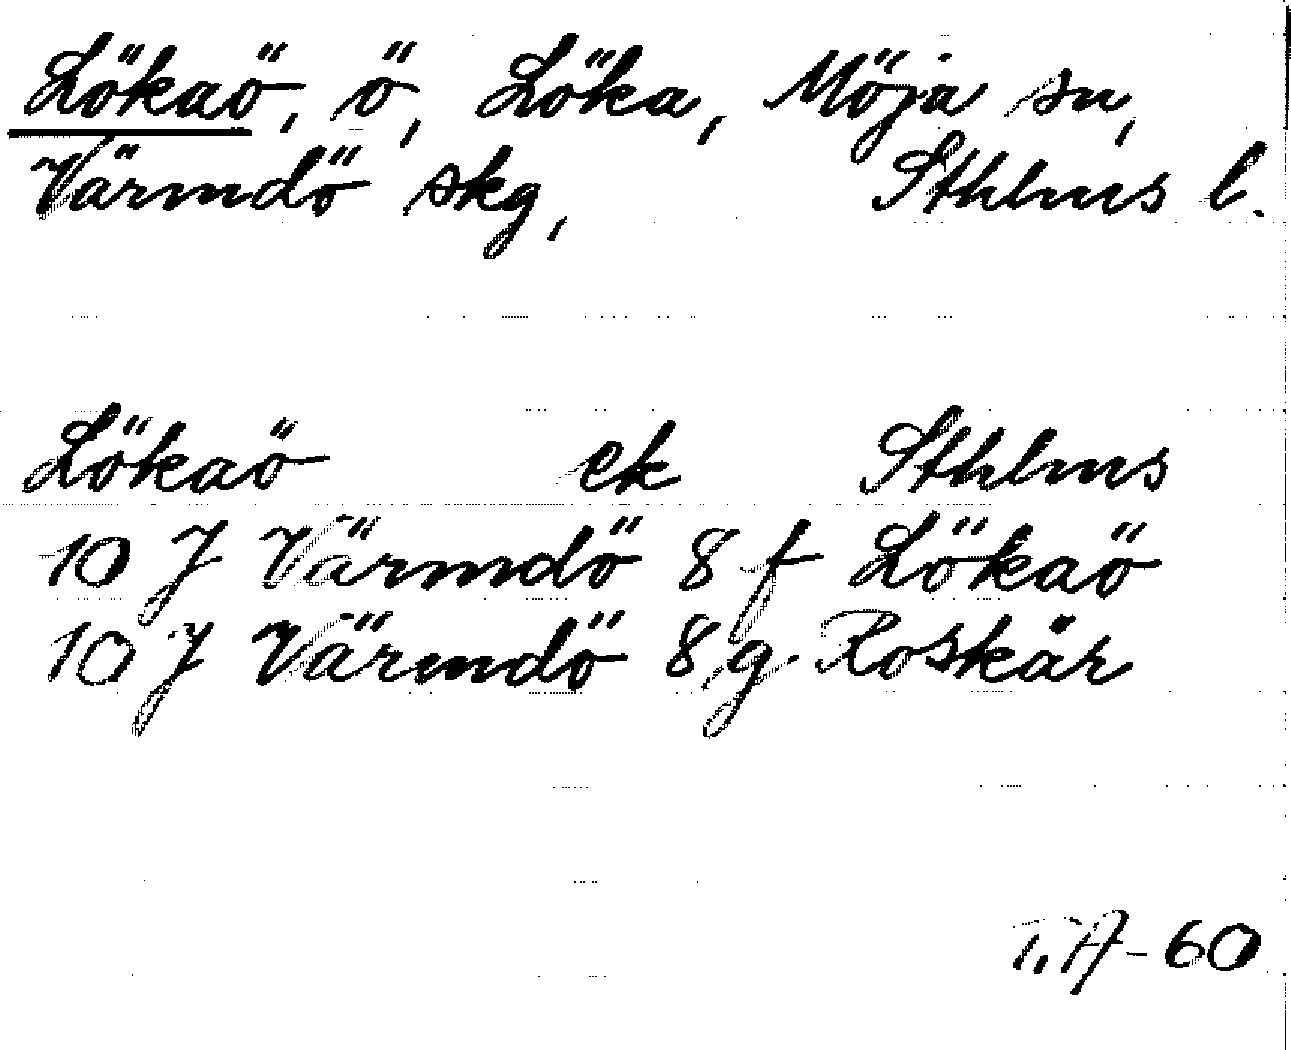 Lökaö, ö, Löka, Möja sn,
Värmdö skg, Sthlms l.
Lökaö ek Sthlms
10 J Värmdö 8 f Lökaö
10 J Värmdö 8 g Roskär
T.A-60